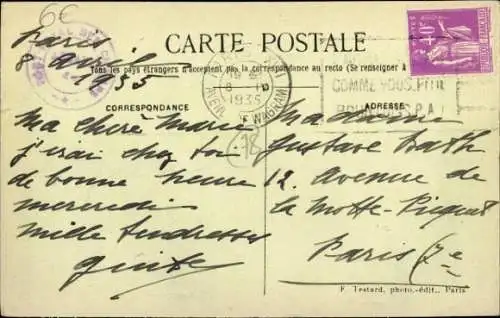 6€
Paris
8 avril
1935
CARTE POSTALE
Tous les pays étrangers n'acceptent pas la correspondance au recto (Se renseigner à
CORRESPONDANCE
ADRESSE
8
1935
AV. WAGRAM
COMME VOUS
40c
(18)
Ma chère Marie
j'irai chez toi
de bonne heure
mercredi
mille tendresses
Madame
Gustave Barth
12. Avenue de
la Motte-Picquet
Paris (7e
F. Testard, photo.-édit., Paris